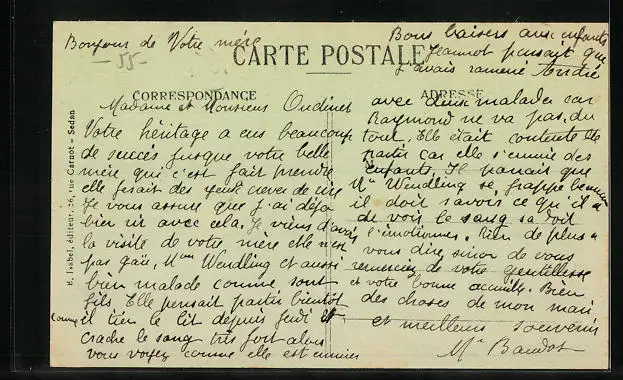 Bonjour de Votre mère
- 55 -
Bons baisers aux enfants
Jeannot pensait que
j'avais ramené André
CARTE POSTALE
CORRESPONDANCE
ADRESSE
E. Isabel, éditeur, 26, rue Carnot - Sedan
Madame et Monsieur Oudinet
Votre héritage a eus beaucoup
de succès jusque votre belle
mère qui c'est fait prendre
elle fesait des yeux de rire
Je vous assure que j'ai déjà
bien rir avec cela. Je viens d'avoir
la visite de votre mère elle n'est
pas gaie, Mme Wendling et aussi
bien malade comme sont
fils Elle pensait partir bientôt
comme il tien le lit depuis Jeudi et
crache le sang très fort alors
vous voyez comme elle est
avec deux malades car
Raymond ne va pas du
tout. Elle était contente de
partir car elle s'ennuie des
enfants. Il parait que
Mr Wendling se frappe beaucoup
il doit savoir ce qu'il a
de voir le sang sa doit
l'émotionner. Rien de plus a
vous dire sinon de vous
remercier de votre gentillesse
et votre bonne accueille. Bien
des choses de mon mari
et meilleurs souvenir
Me Baudot